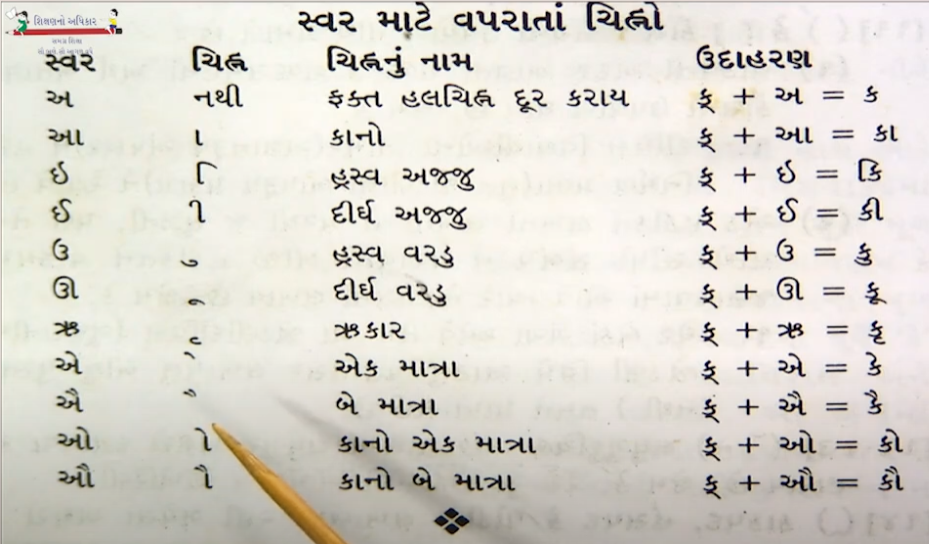 શિક્ષણનો અધિકાર
સ્વર માટે વપરાતાં ચિહ્નો
સ્વર ચિહ્ન ચિહ્નનું નામ ઉદાહરણ
અ નથી ફક્ત હલચિહ્ન દૂર કરાય ક્ + અ = ક
આ ા કાનો ક્ + આ = કા
ઈ િ હ્રસ્વ અજ્જુ ક્ + ઈ = કિ
ઈ ી દીર્ઘ અજ્જુ ક્ + ઈ = કી
ઉ ુ હ્રસ્વ વરડુ ક્ + ઉ = કુ
ઊ દીર્ઘ વરડુ ક્ + ઊ = કૂ
ઋ ઋકાર ક્ + ઋ = કૃ
એ ે એક માત્રા ક્ + એ = કે
ઐ ૈ બે માત્રા ક્ + ઐ = કૈ
ઓ કાનો એક માત્રા ક્ + ઓ = કો
ઔ ૌ કાનો બે માત્રા ક્ + ઔ = કૌ